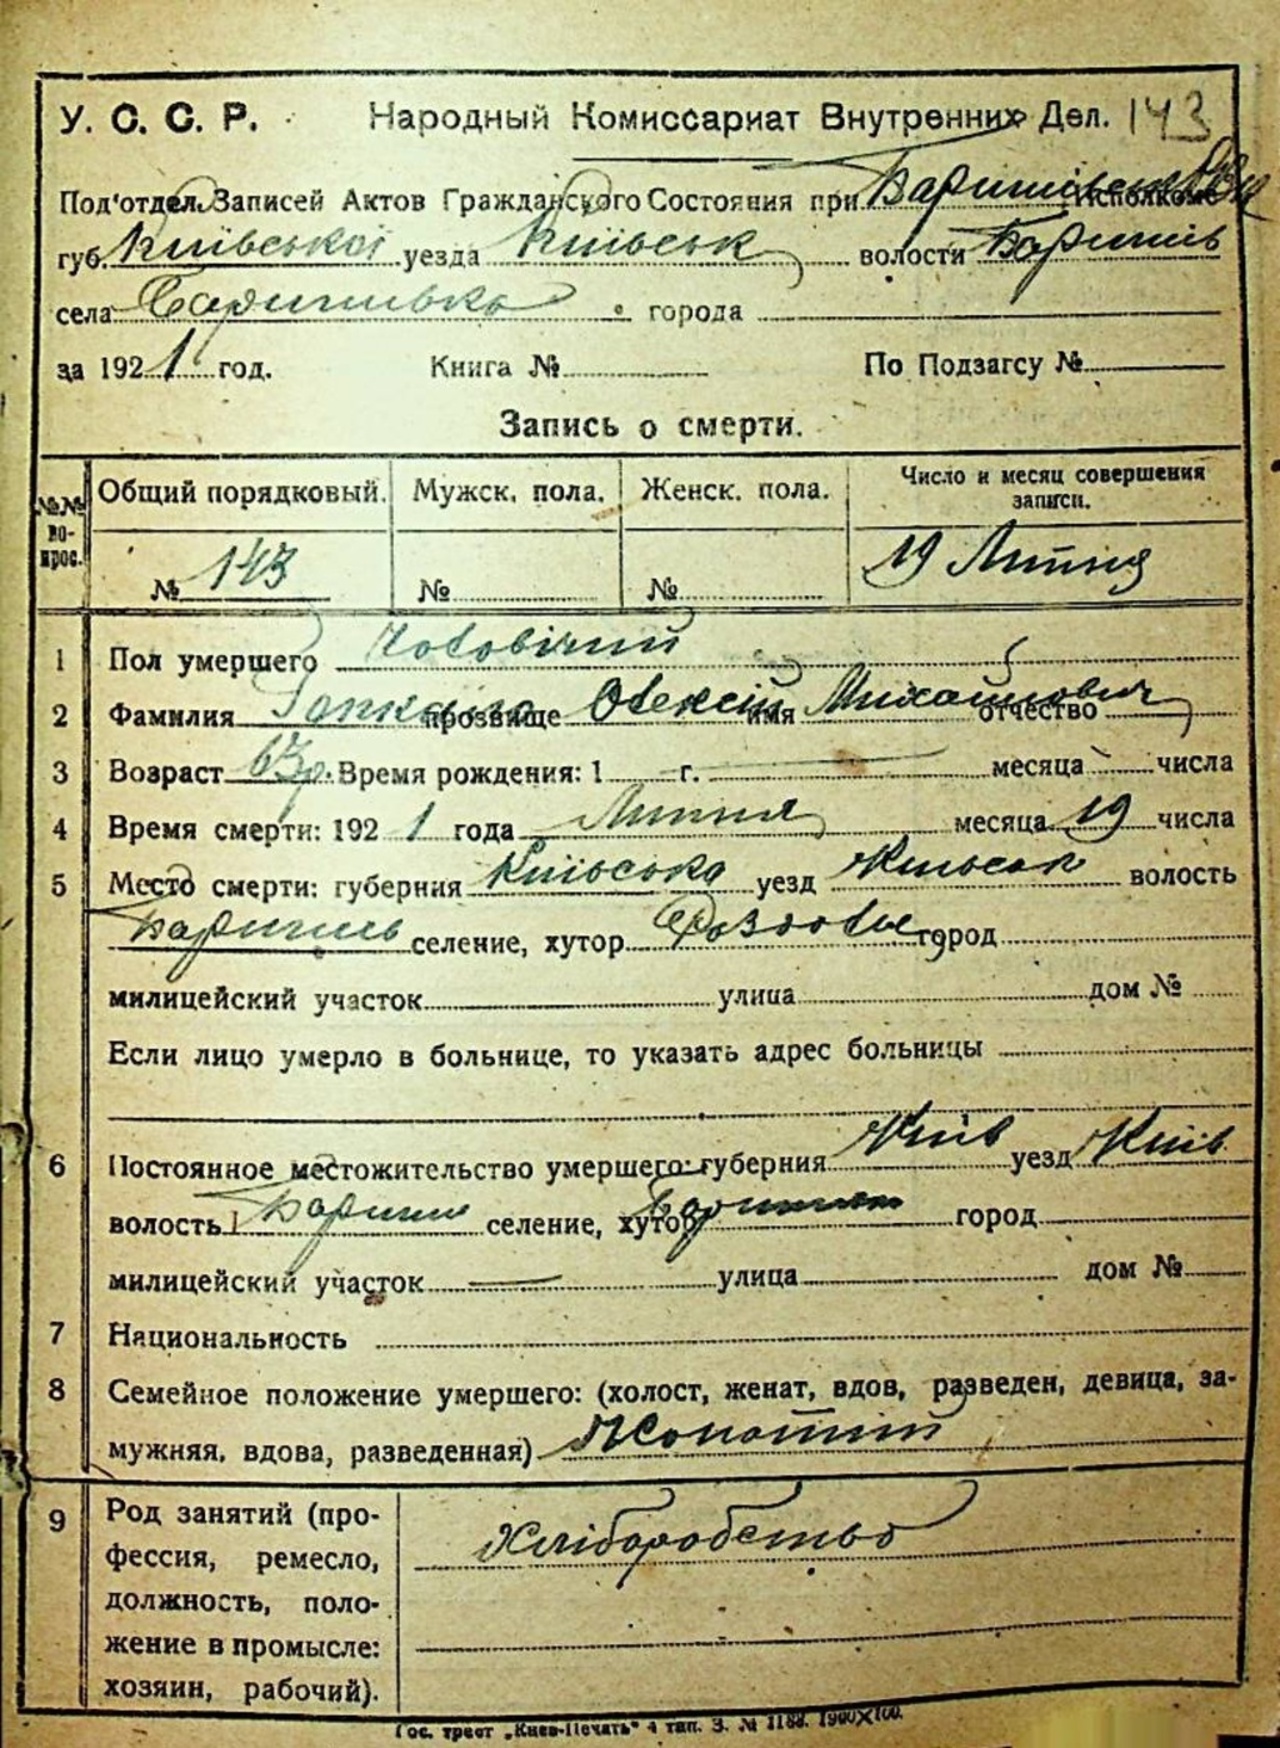 У. С. С. Р. Народный Комиссариат Внутренних Дел. 143
Под'отдел Записей Актов Гражданского Состояния при Исполкоме
губ. Київської уезда Київськ волости Баришів
села Баришівка города
за 1921 год. Книга № По Подзагсу №
Запись о смерти.
№№ вопрос. Общий порядковый. Мужск. пола. Женск. пола. Число и месяц совершения записи.
№ 143 № № 19 Липня
1 Пол умершего Чоловічий
2 Фамилия прозвище Олексій имя Михайлович отчество
3 Возраст 63 р. Время рождения: 1 г. месяца числа
4 Время смерти: 1921 года Липня месяца 19 числа
5 Место смерти: губерния Київська уезд Київськ волость
Баришів селение, хутор город
милицейский участок улица дом №
Если лицо умерло в больнице, то указать адрес больницы
6 Постоянное местожительство умершего: губерния Київ уезд Київ
волость Бориш селение, хутор город
милицейский участок улица дом №
7 Национальность
8 Семейное положение умершего: (холост, женат, вдов, разведен, девица, за-
мужняя, вдова, разведенная) Жонатий
9 Род занятий (про-
фессия, ремесло, Хліборобство
должность, поло-
жение в промысле:
хозяин, рабочий).
Гос. трест „Киев-Печать" 4 тип. З. № 1188. 1900×100.